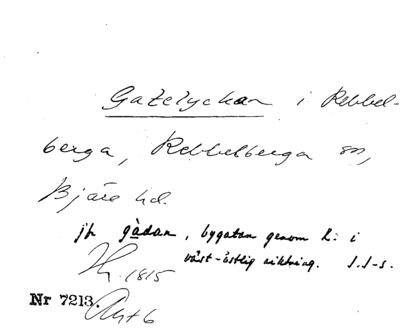 Gatelyckan i Rebbel-
berga, Rebbelberga sn,
Bjäre hd.
jfr gàdan, bygatan genom R: i
väst-östlig riktning. S.I-s.
1815
Nr 7213.